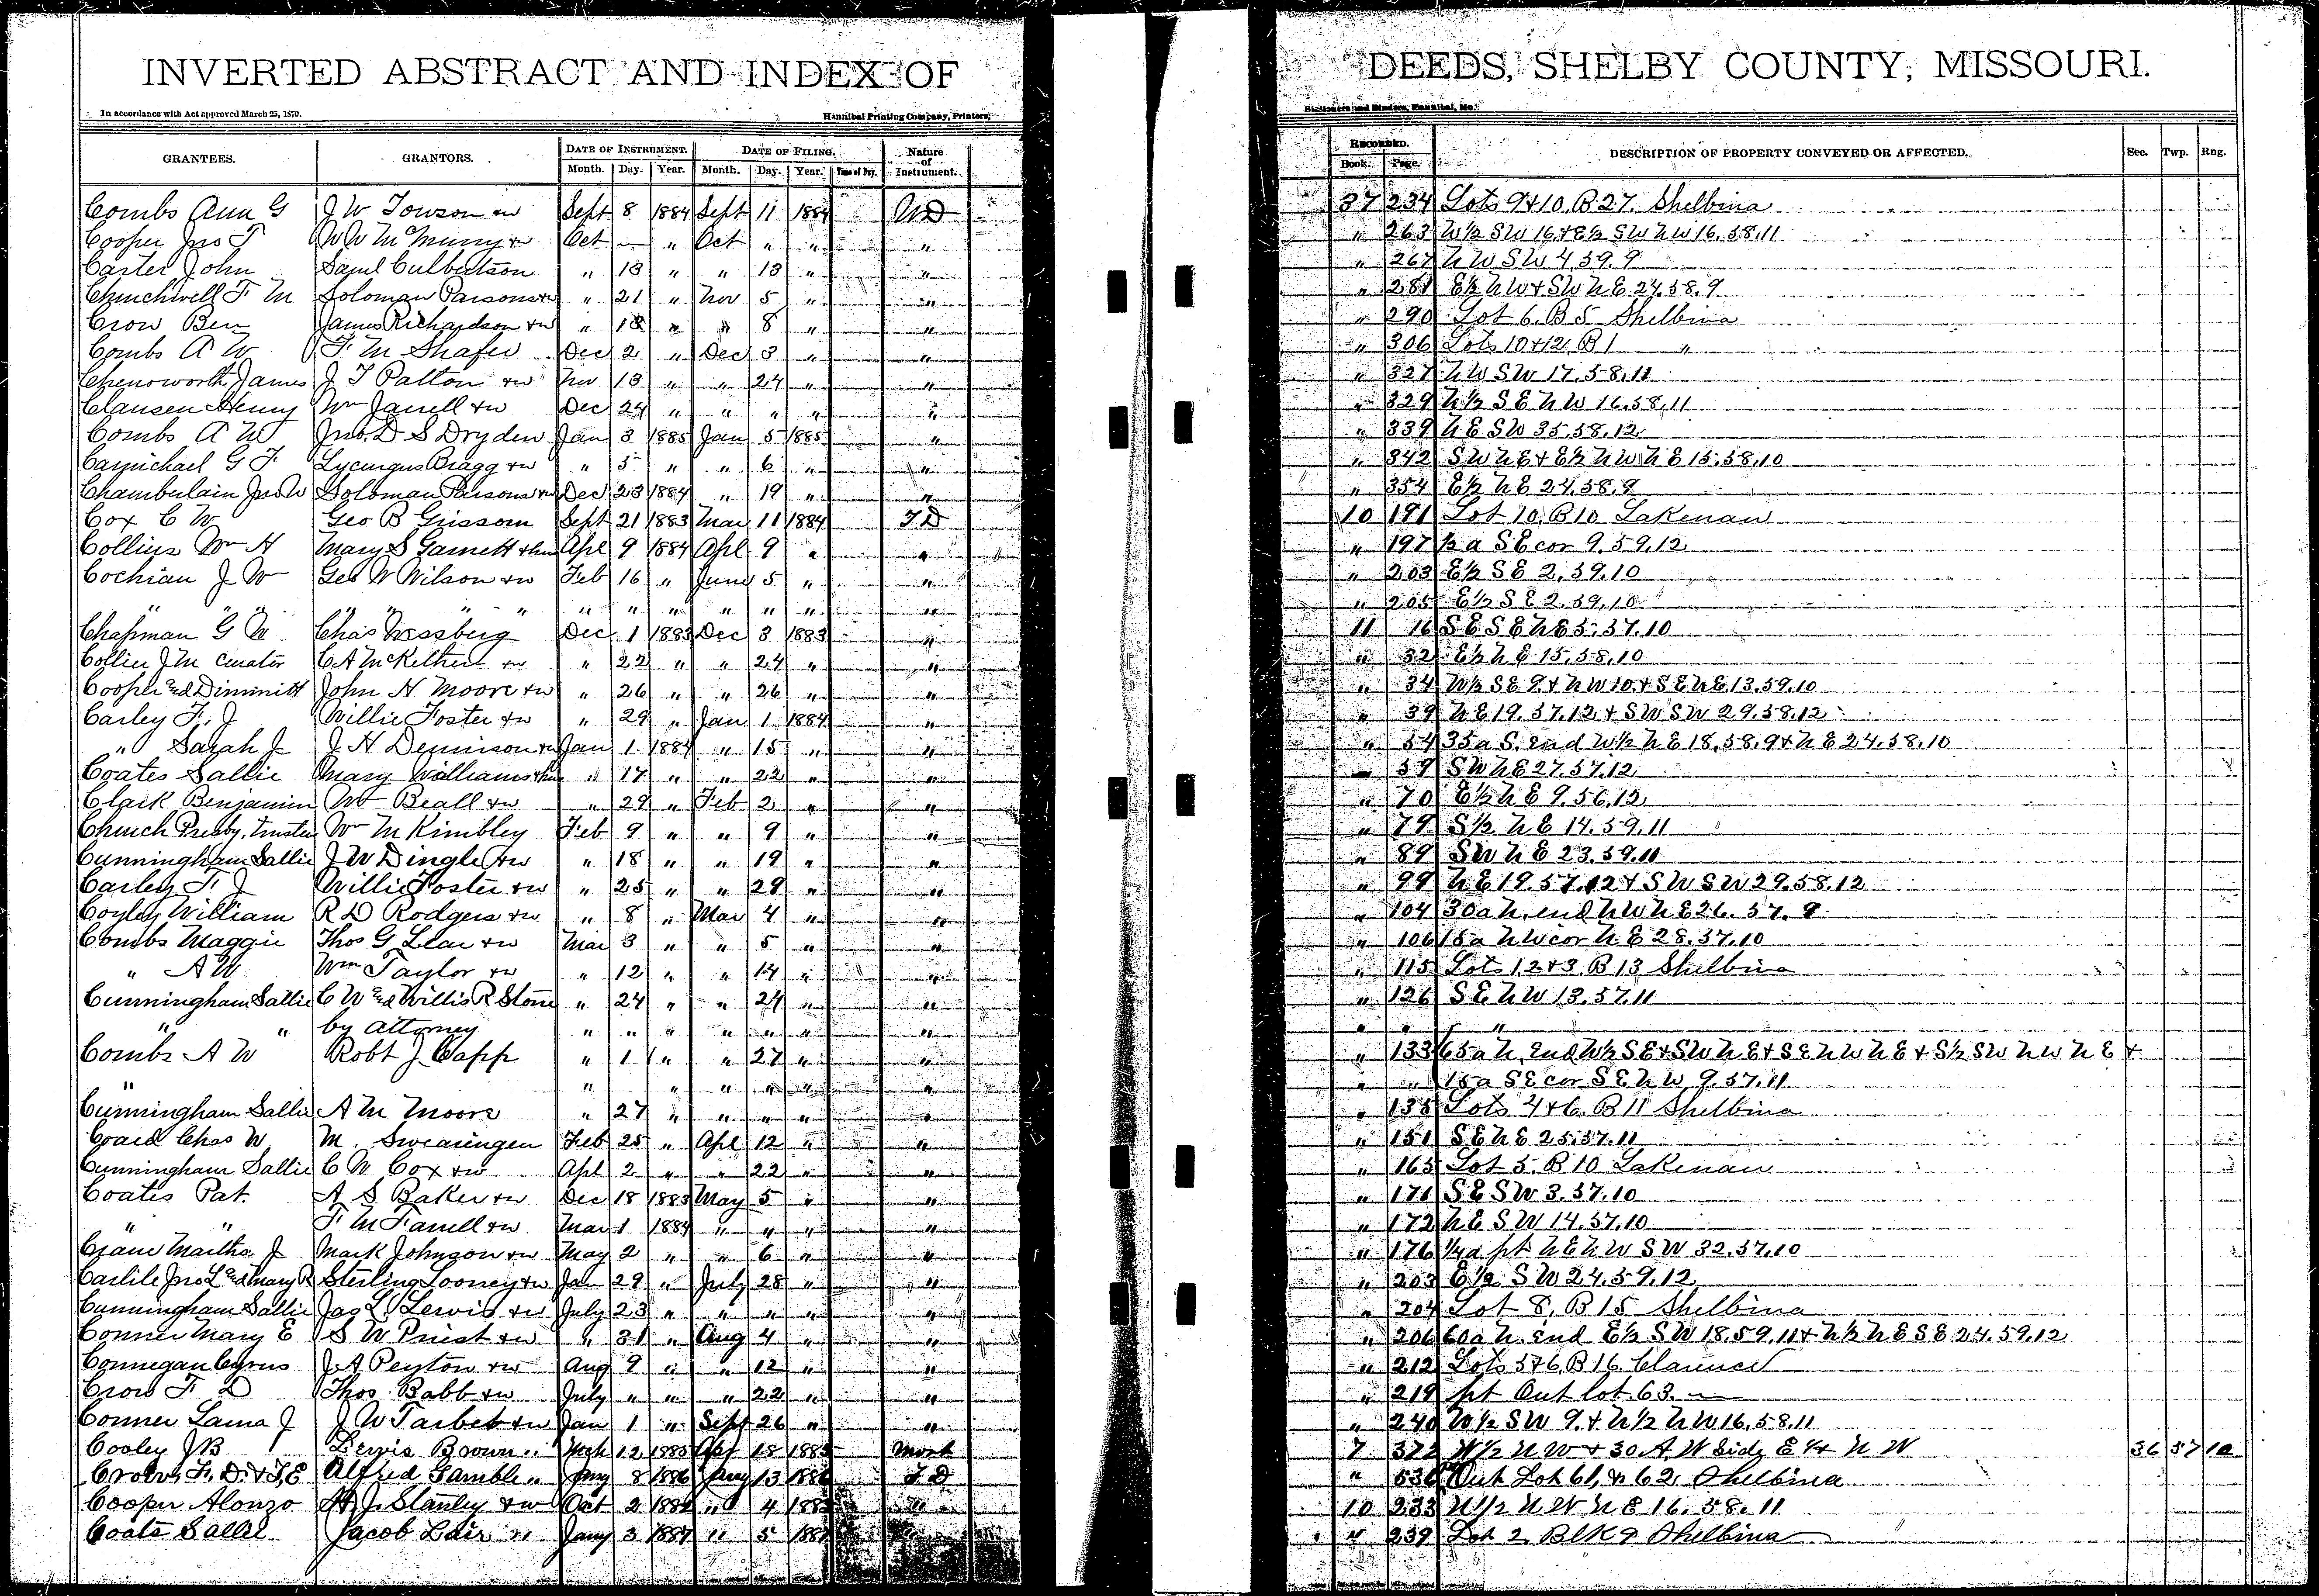 INVERTED ABSTRACT AND INDEX OF DEEDS, SHELBY COUNTY, MISSOURI.
In accordance with Act approved March 25, 1870. Hannibal Printing Company, Printers, Stationers and Binders, Hannibal, Mo.
GRANTEES. GRANTORS. DATE OF INSTRUMENT. DATE OF FILING. Nature of Instrument. RECORDED. DESCRIPTION OF PROPERTY CONVEYED OR AFFECTED. Sec. Twp. Rng.
Month. Day. Year. Month. Day. Year. Time of Day. Book. Page.
Combs Ann G J W Towson & w Sept 8 1884 Sept 11 1884 WD 37 234 Lots 9 & 10 B 27 Shelbina
Cooper Jno T W W McMurry & w Oct — " Oct " " " " 263 W½ SW 16 & E½ SW NW 16.58.11
Carter John Saml Culbertson " 13 " " 13 " " " 267 NW SW 4.59.9
Churchwell F M Soloman Parsons & w " 21 " Nov 5 " " " 281 E½ NW & SW NE 24.58.9
Crow Ben James Richardson & w " 18 " " 8 " " " 290 Lot 6 B 5 Shelbina
Combs A W F M Shafer Dec 2 " Dec 3 " " " 306 Lots 10 & 12 B 1 "
Chenoworth James J T Patton & w Nov 13 " " 24 " " " 327 NW SW 17.58.11
Clausen Henry Wm Jarrell & w Dec 24 " " " " " " 329 N½ SE NW 16.58.11
Combs A W Jno. D S Dryden Jan 3 1885 Jan 5 1885 " " 339 NE SW 35.58.12
Carmichael G F Lycurgus Bragg & w " 5 " " 6 " " " 342 SW NE & E½ NW NE 15.58.10
Chamberlain Jno W Soloman Parsons & w Dec 23 1884 " 19 " " " 354 E½ NE 24.58.9
Cox C W Geo B Grissom Sept 21 1883 Mar 11 1884 TD 10 191 Lot 10 B 10 Lakenan
Collins Wm H Mary S Garnett & hus Apl 9 1884 Apl 9 " " " 197 ½ a SE cor 9.59.12
Cochran J W Geo W Wilson & w Feb 16 " June 5 " " " 203 E½ SE 2.59.10
" " " " " " " " " " " " " " " 205 E½ SE 2.59.10
Chapman G W Chas Nessberg Dec 1 1883 Dec 3 1883 " 11 16 SE SE NE 5.57.10
Collier J M curator C A McKethen & w " 22 " " 24 " " " 32 E½ NE 15.58.10
Cooper and Dimmitt John H Moore & w " 26 " " 26 " " " 34 W½ SE 9 & NW 10 & SE NE 13.59.10
Carley F. J Willie Foster & w " 29 " Jan 1 1884 " " 39 NE 19.57.12 & SW SW 29.58.12
" Sarah J J H Dennison & w Jan 1 1884 " 15 " " " 54 35 a S. end W½ NE 18.58.9 & NE 24.58.10
Coates Sallie Mary Williams & hus " 17 " " 22 " " " 59 SW NE 27.57.12
Clark Benjamin Wm Beall & w " 29 " Feb 2 " " " 70 E½ NE 9.56.12
Church Presby. trustees Wm M Kimbley Feb 9 " " 9 " " " 79 S½ NE 14.59.11
Cunningham Sallie J W Dingle & w " 18 " " 19 " " " 89 SW NE 23.59.11
Carley F. J Willie Foster & w " 25 " " 29 " " " 99 NE 19.57.12 & SW SW 29.58.12
Coyley William R D Rodgers & w " 8 " Mar 4 " " " 104 30 a N. end NW NE 26.57.9
Combs Maggie Thos G Lear & w Mar 3 " " 5 " " " 106 15 a NW cor NE 28.57.10
" A W Wm Taylor & w " 12 " " 14 " " " 115 Lots 1 2 & 3 B 13 Shelbina
Cunningham Sallie C W and Willis R Stone " 24 " " 24 " " " 126 SE NW 13.57.11
" " by attorney " " " " " " " " " " "
Combs A W Robt J Capp " 1 " " 27 " " " 133 65 a N. End W½ SE & SW NE & SE NW NE & S½ SW NW NE &
" " " " " " " " " 15 a SE cor SE NW 9.57.11
Cunningham Sallie A M Moore " 27 " " " " " " 135 Lots 4 & 6 B 11 Shelbina
Coard Chas W M. Swearingen Feb 25 " Apl 12 " " " 151 SE NE 25.57.11
Cunningham Sallie C W Cox & w Apl 2 " " 22 " " " 165 Lot 5 B 10 Lakenan
Coates Pat. A S Baker & w Dec 18 1883 May 5 " " " 171 SE SW 3.57.10
" " F M Farrell & w Mar 1 1884 " " " " " 172 NE SW 14.57.10
Crane Martha J Mark Johnson & w May 2 " " 6 " " " 176 ¼ a pt NE NW SW 32.57.10
Carlile Jno L and Mary R Sterling Looney & w Jan 29 " July 28 " " " 203 E½ SW 24.59.12
Cunningham Sallie Jas L Lewis & w July 23 " " " " " " 204 Lot 8, B 15 Shelbina
Conner Mary E S W Priest & w " 31 " Aug 4 " " " 206 60 a N. end E½ SW 18.59.11 & N½ NE SE 24.59.12
Connegan Cyrus J A Peyton & w Aug 9 " " 12 " " " 212 Lots 5 & 6 B 16 Clarence
Crow F D Thos Babb & w July " " " 22 " " " 219 pt Out lot 63.
Conner Lama J J W Tarbet & w Jan 1 " Sept 26 " " " 240 W½ SW 9. & N½ NW 16.58.11
Cooley J B Lewis Brown " Mch 12 1885 Apr 18 1885 Mort 7 372 W½ NW & 30 A W Side E ½ NW 36 57 10
Crow, F. D. & J, E Alfred Gamble " Jany 8 1886 Jany 13 1886 TD " 536 Out Lot 61, & 62, Shelbina
Cooper Alonzo H. J. Stanley & w Oct 2 1884 " 4 1885 " 10 233 N½ NW NE 16.58.11
Coats Sallie Jacob Lair " Jany 3 1887 " 5 1887 " 239 Lot 2, Blk 9 Shelbina